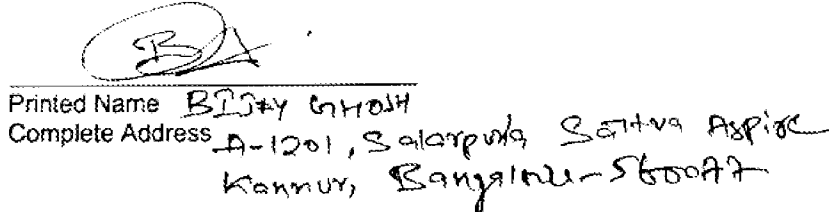 BA
Printed Name BIJAY GHOSH
Complete Address A-1201, Salarpuria Sattva Aspire
Kannur, Bangalore-560077